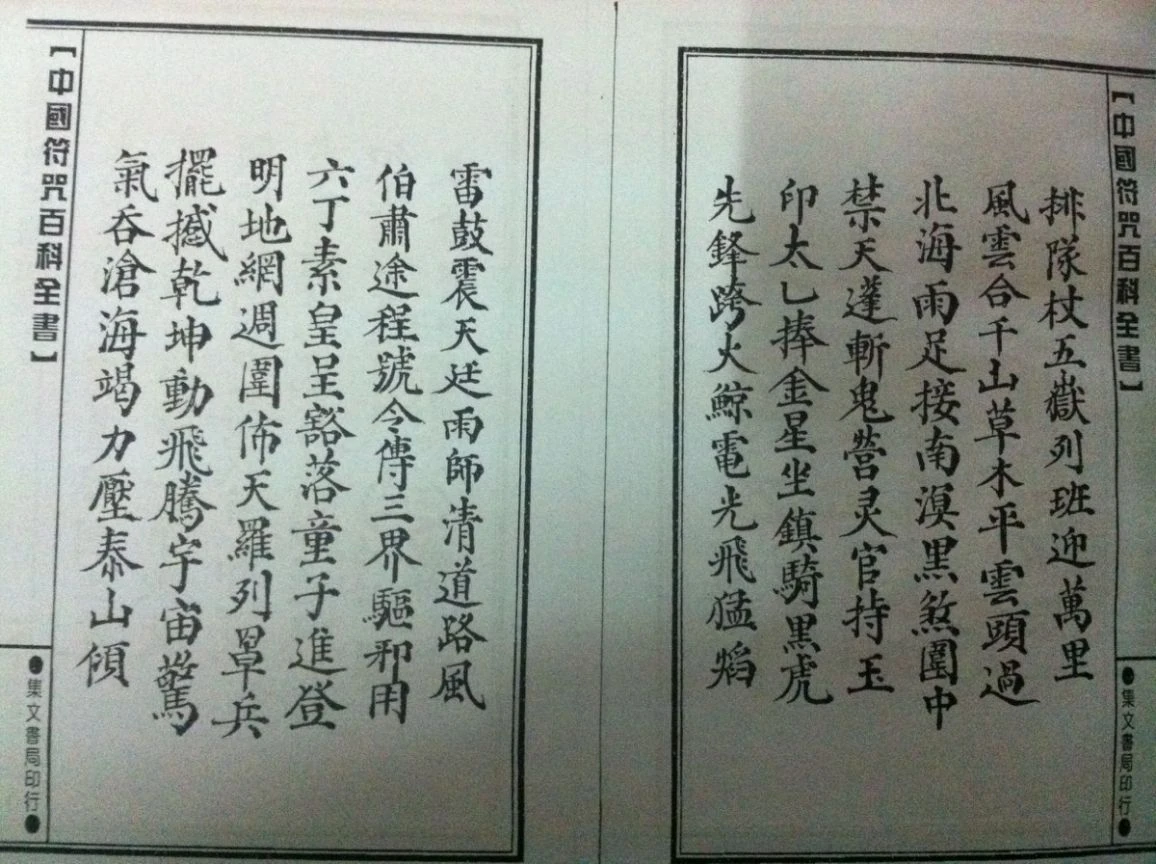 【中國符咒百科全書】
排隊杖五嶽列班迎萬里
風雲合千山草木平雲頭過
北海雨足接南溟黑煞圍中
禁天蓬斬鬼營灵官持玉
印太乙捧金星坐鎮騎黑虎
先鋒跨火鯨電光飛猛焰
●集文書局印行●
雷鼓震天廷雨師清道路風
伯肅途程號令傳三界驅邪用
六丁素皇呈豁落童子進登
明地網週圍佈天羅列罩兵
擺撼乾坤動飛騰宇宙驚
氣吞滄海竭力壓泰山傾
【中國符咒百科全書】
●集文書局印行●